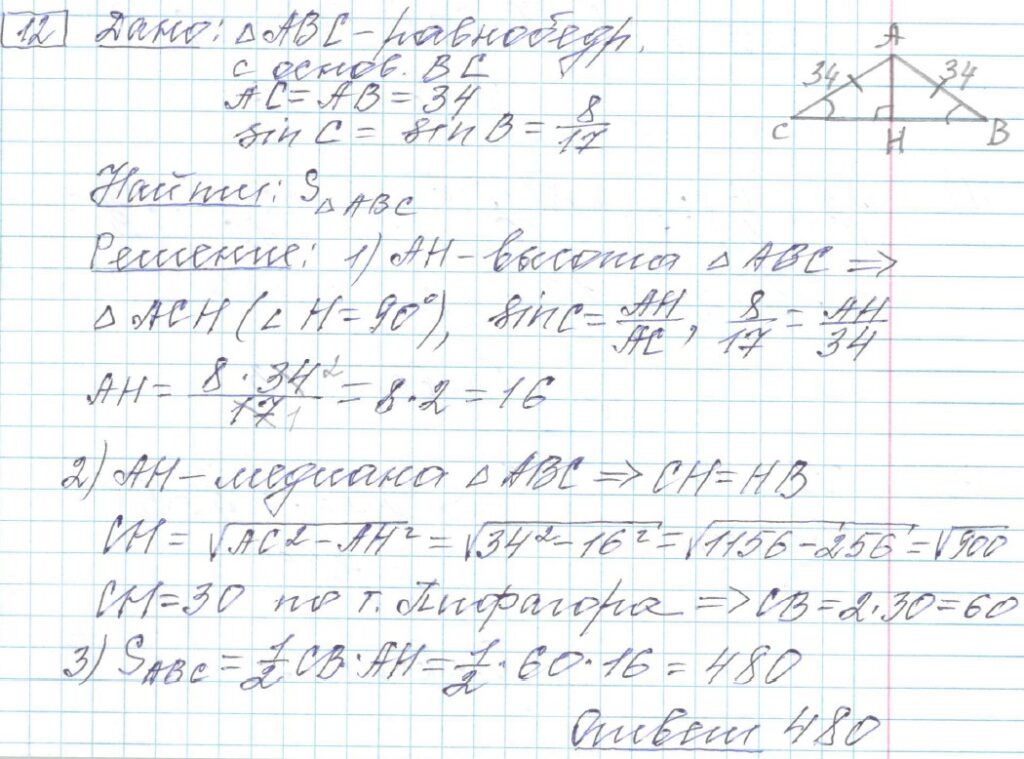 12 Дано: △ABC - равнобедр.
с основ. BC
AC = AB = 34
sin C = sin B = 8/17
A
34 34
C H B
Найти: S△ABC
Решение: 1) AH - высота △ABC ⇒
△ACH (∠H = 90°), sin C = AH/AC, 8/17 = AH/34
AH = 8·34²/17 1 = 8·2 = 16
2) AH - медиана △ABC ⇒ CH = HB
CH = √AC² - AH² = √34² - 16² = √1156 - 256 = √900
CH = 30 по т. Пифагора ⇒ CB = 2·30 = 60
3) SABC = 1/2 CB·AH = 1/2·60·16 = 480
Ответ 480